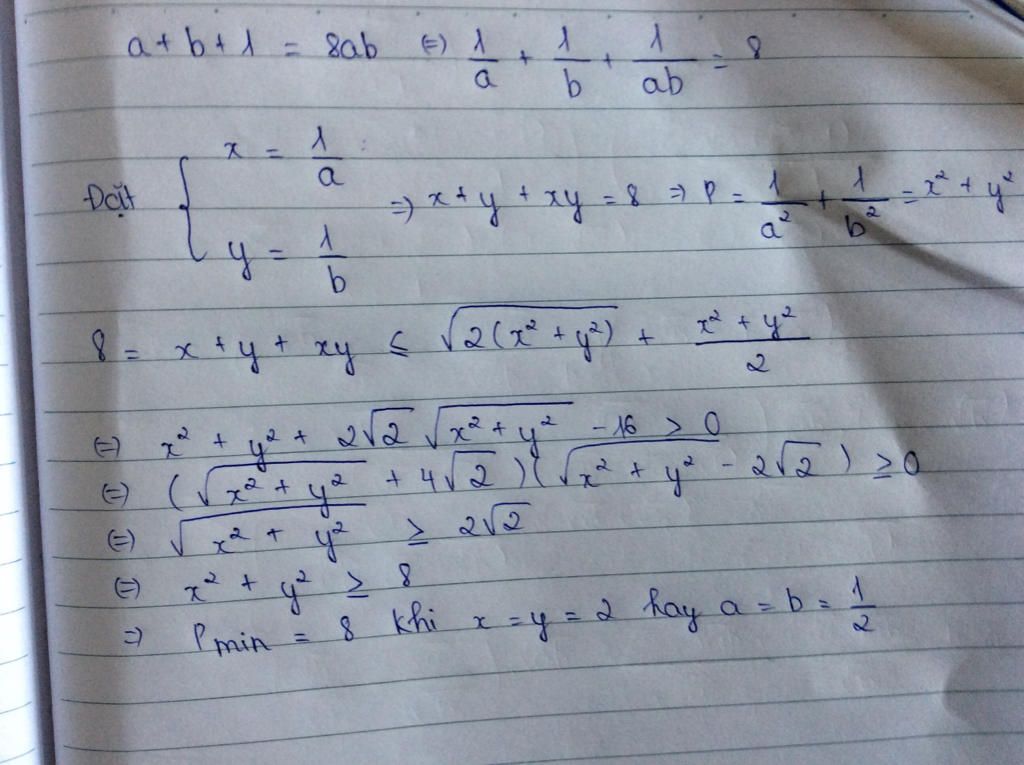 a + b + 1 = 8ab (=) 1/a + 1/b + 1/ab = 8
Đặt { x = 1/a ; y = 1/b => x + y + xy = 8 => P = 1/a² + 1/b² = x² + y²
8 = x + y + xy ≤ √(2(x² + y²)) + (x² + y²)/2
(=) x² + y² + 2√2 √(x² + y²) - 16 > 0
(=) (√(x² + y²) + 4√2)(√(x² + y²) - 2√2) ≥ 0
(=) √(x² + y²) ≥ 2√2
(=) x² + y² ≥ 8
=> Pmin = 8 khi x = y = 2 hay a = b = 1/2